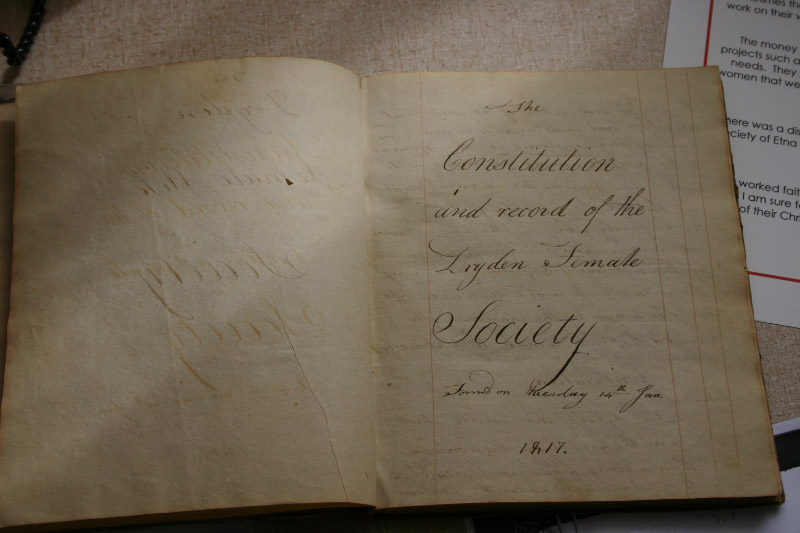 The
Constitution
and record of the
Dryden Female
Society
Form'd on Tuesday 14th Jan.
1817.
work on their
The money
projects such
needs. They
women that
was a
of Etna
worked
I am sure
of their